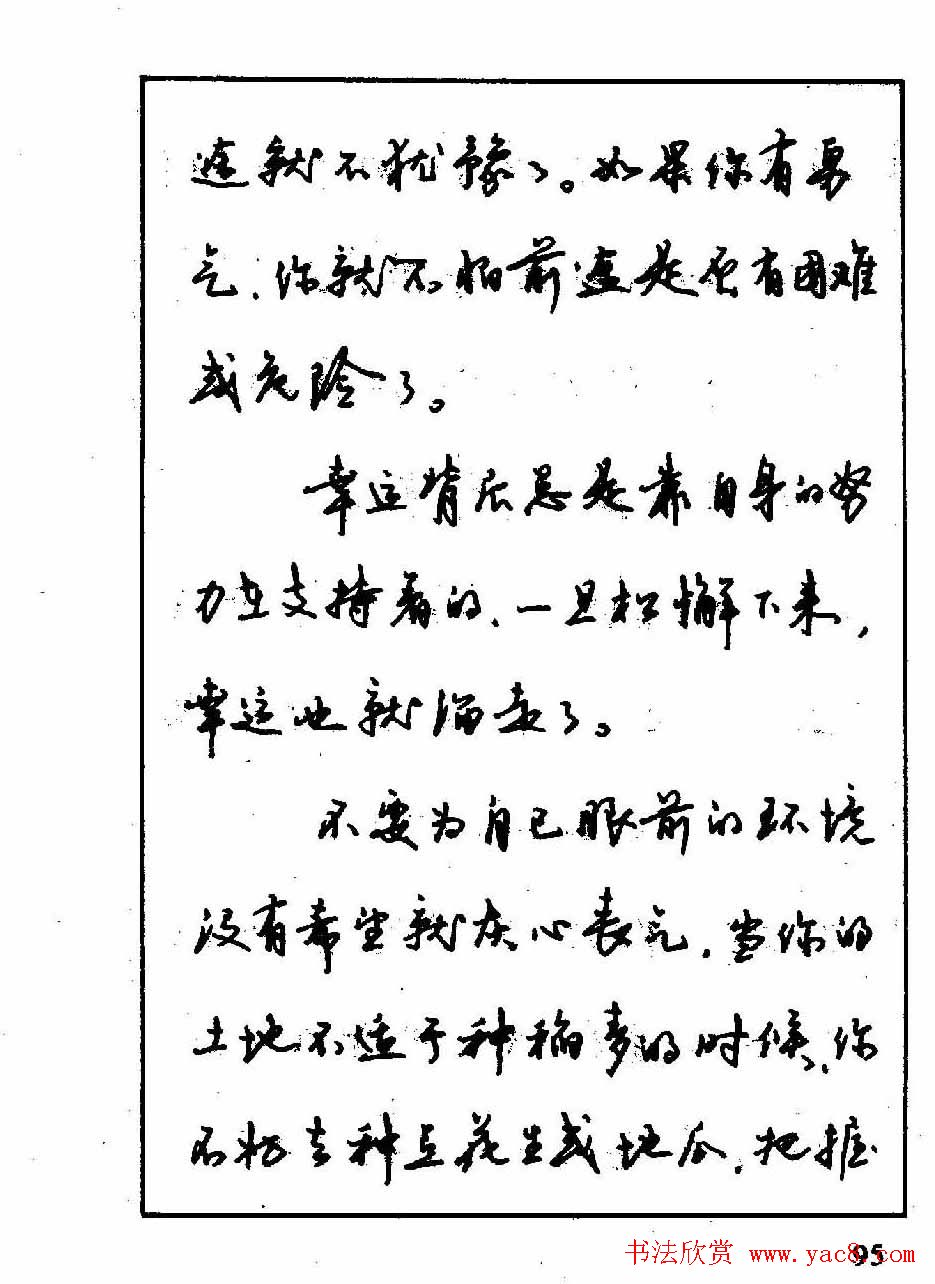 途就不犹豫了。如果你有勇
气，你就不怕前途是否有困难
或危险了。
幸运背后总是靠自身的努
力在支持着的，一旦松懈下来，
幸运也就溜走了。
不要为自己眼前的环境
没有希望就灰心丧气，当你的
土地不适于种稻麦的时候，你
不妨去种点花生或地瓜，把握
95
书法欣赏 www.yac8.com